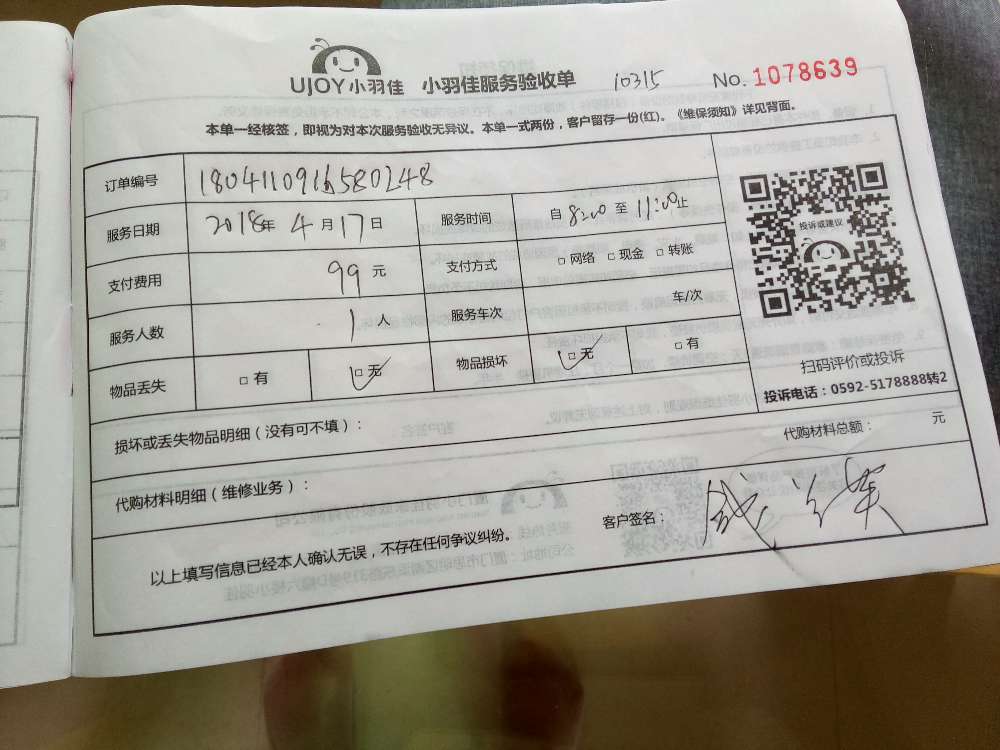 UJOY小羽佳 小羽佳服务验收单 10315 No. 1078639
本单一经核签，即视为对本次服务验收无异议。本单一式两份，客户留存一份(红)。《维保须知》详见背面。
订单编号 1804110916580248
服务日期 2018年 4月17日 服务时间 自 8:00 至 11:00止
支付费用 99 元 支付方式 □网络 □现金 □转账
服务人数 1 人 服务车次 车/次
物品丢失 □有 □无 物品损坏 □无 □有
投诉或建议
扫码评价或投诉
投诉电话：0592-5178888转2
损坏或丢失物品明细（没有可不填）：
代购材料明细（维修业务）： 代购材料总额： 元
以上填写信息已经本人确认无误，不存在任何争议纠纷。 客户签名：